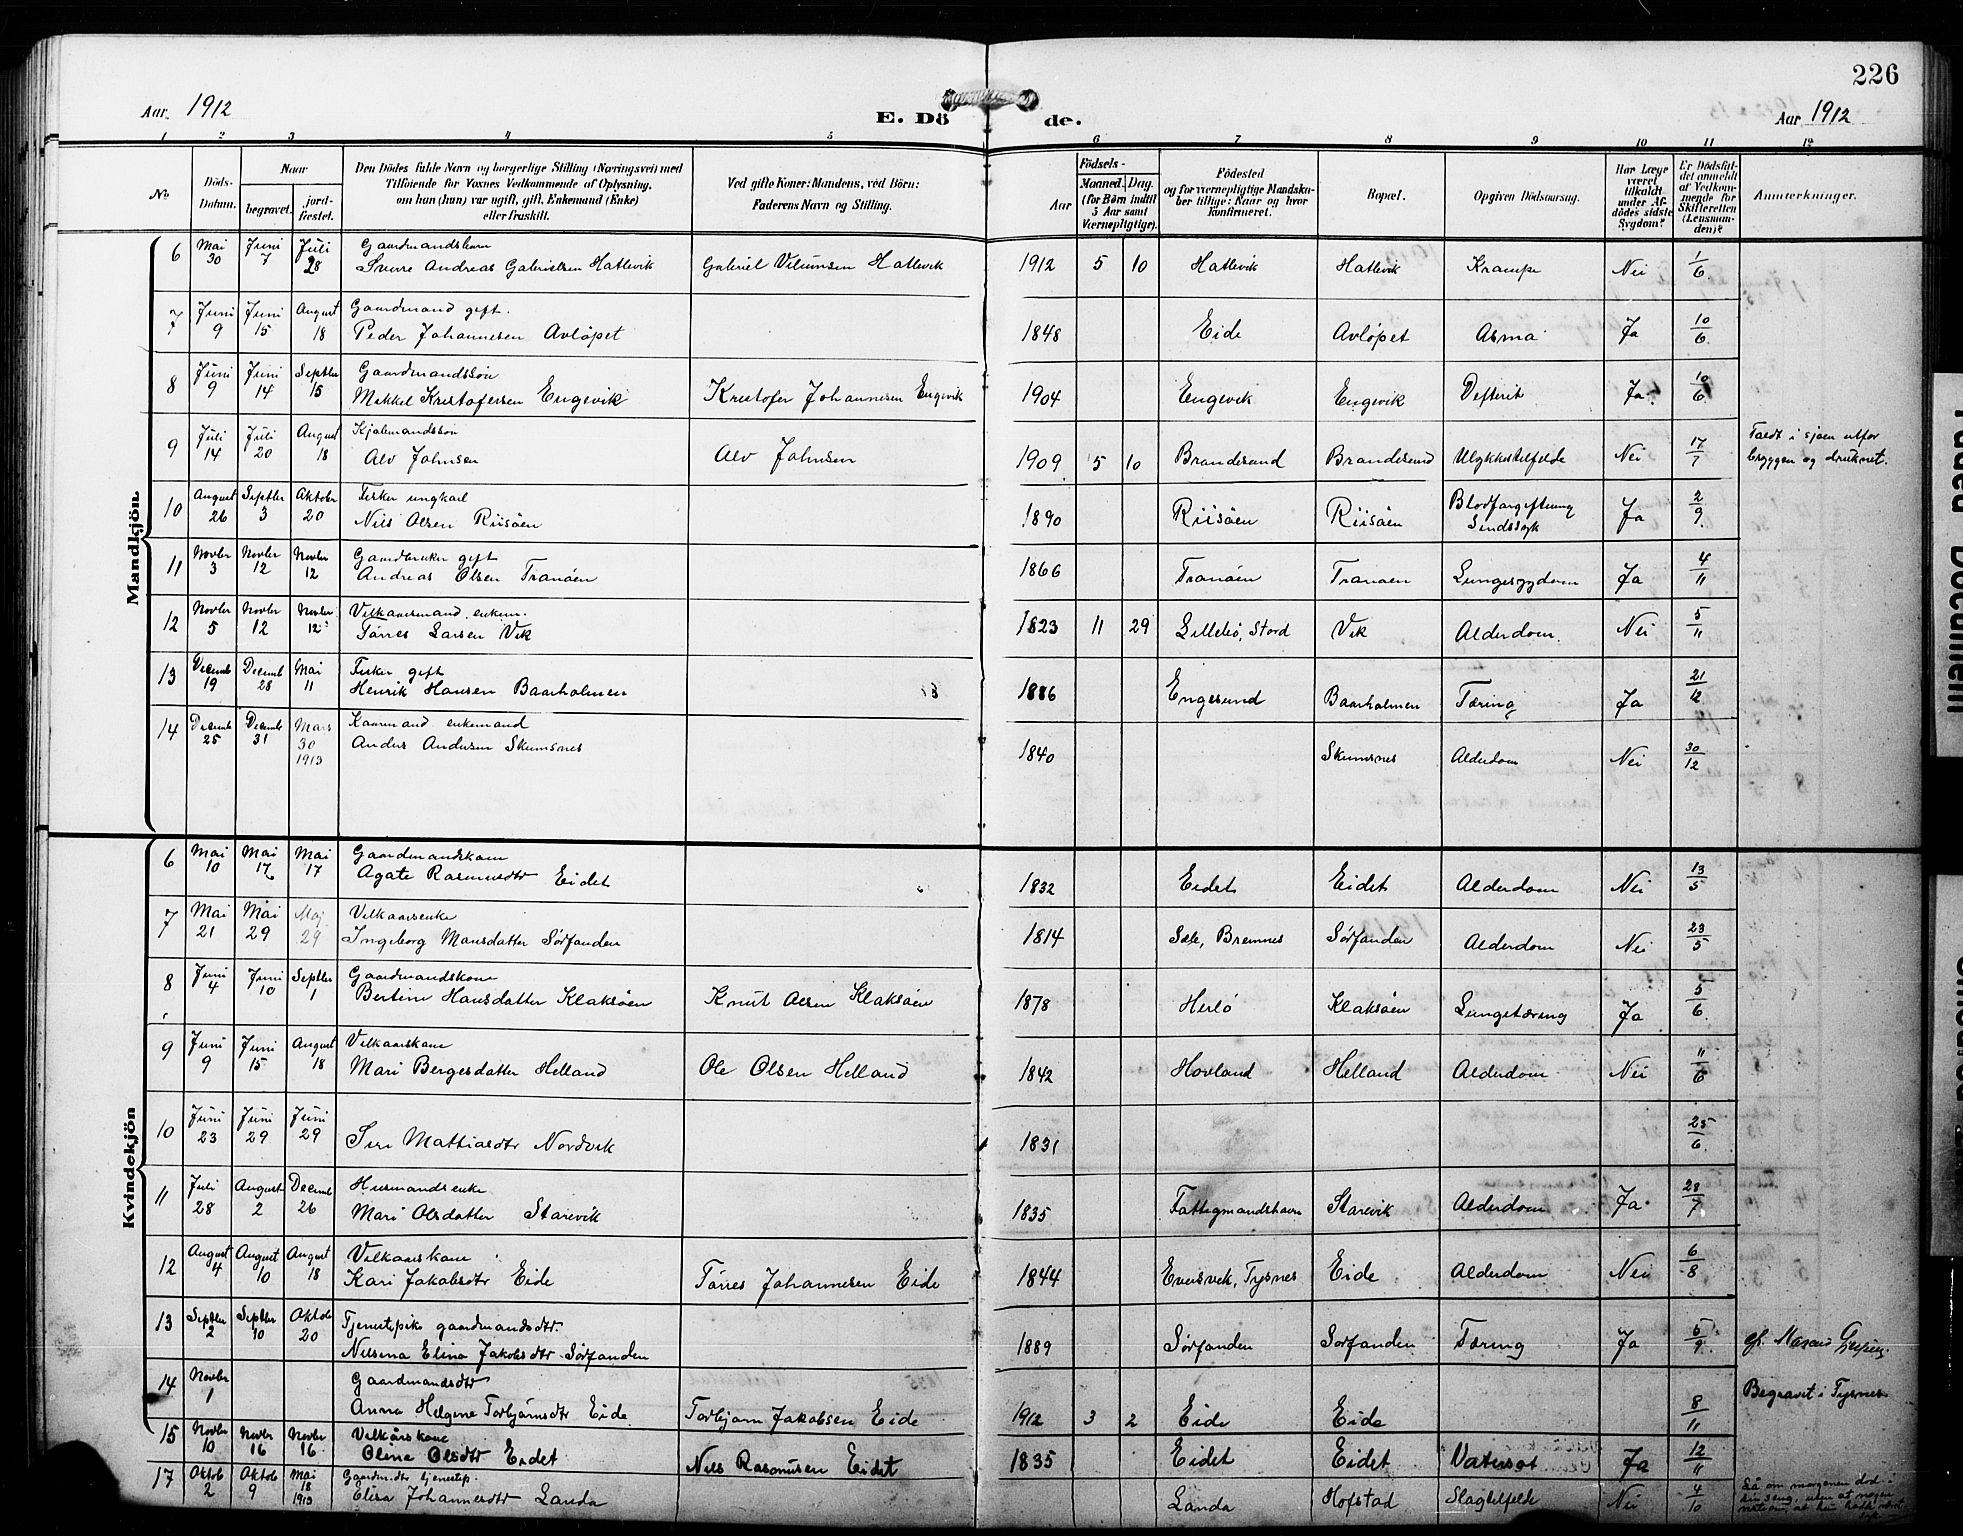 226
Aar. 1912
E. Dö de.
Aar 1912
1 2 3 4 5 6 7 8 9 10 11 12
No
Döds-Datum.
Naar
begravet.
jordfæstet.
Den Dödes fulde Navn og borgerlige Stilling (Næringsvei) med
Tilföiende for Voxnes Vedkommende af Oplysning,
om han (hun) var ugift, gift, Enkemand (Enke)
eller fraskilt.
Ved gifte Koner: Mandens, ved Börn:
Faderens Navn og Stilling.
Födsels-
Aar
Maaned. Dag.
(for Börn indtil
5 Aar samt
Værnepligtige).
Födested
og for værnepligtige Mandska-
ber tillige: Naar og hvor
konfirmeret.
Bopæl.
Opgiven Dödsaarsag.
Har Læge
været
tilkaldt
under Af-
dödes sidste
Sygdom?
Er Dödsfal-
det anmeldt
af Vedkom-
mende for
Skifteretten
(Lensman-
den)?
Anmærkninger.
Mandkjön
6 Mai 30 Juni 7 Juli 28 Gaardmandsbarn
Sverre Andreas Gabrielsen Hatlevik Gabriel Villumsen Hatlevik 1912 5 10 Hatlevik Hatlevik Krampe Nei 1/6
7 Juni 9 Juni 15 August 18 Gaardmand gift.
Peder Johannesen Avløpet 1848 Eide Avløpet Asma Ja 10/6
8 Juni 9 Juni 14 Septbr 15 Gaardmandssön
Mikkel Kristofersen Engevik Kristofer Johannesen Engevik 1904 Engevik Engevik Defterit Ja 10/6
9 Juli 14 Juli 20 August 18 Kjøbmandssön
Alv Johnsen Alv Johnsen 1909 5 10 Brandesund Brandesund Ulykkestilfelde Nei 17/7 Faldt i sjøen utfor
bryggen og druknet.
10 August 26 Septbr 3 Oktober 20 Fisker ungkarl
Nils Olsen Riisöen 1890 Riisöen Riisöen Blodforgiftning
Sindssyk Ja 2/9
11 Novbr 3 Novbr 12 Novbr 12 Gaardbruker gift
Andreas Olsen Tranöen 1866 Tranöen Tranöen Lungesygdom Ja 4/11
12 Novbr 5 Novbr 12 Novbr 12 Vilkaarsmand, enkem.
Tørres Larsen Vik 1823 11 29 Lillebø, Stord Vik Alderdom. Nei 5/11
13 Decemb 19 Decemb 28 Mai 11 Fisker gift
Henrik Hansen Baarholmen 1886 Engesund Baarholmen Tæring Ja 21/12
14 Decemb 25 Decemb 31 Mars 30 1913 Kaarmand enkemand
Anders Andersen Skumsnes 1840 Skumsnes Alderdom Nei 30/12
Kvindekjön
6 Mai 10 Mai 17 Mai 17 Gaardmandskone
Agate Rasmusdtr Eidet 1832 Eidet Eidet Alderdom Nei 13/5
7 Mai 21 Mai 29 Maj 29 Vilkaarsenke
Ingeborg Mansdatter Sørfonden 1814 Sæle, Bremnes Sørfonden Alderdom Nei 23/5
8 Juni 4 Juni 10 Septbr 1 Gaardmandskone
Bertine Hansdatter Klaksöen Knut Olsen Klaksöen 1878 Herlö Klaksöen Lungetæring Ja 5/6
9 Juni 9 Juni 15 August 18 Vilkaarskone
Mari Bergesdatter Helland Ole Olsen Helland 1842 Hovland Helland Alderdom Nei 11/6
10 Juni 23 Juni 29 Juni 29
Siri Mattiasdtr Nordvik 1831 25/6
11 Juli 28 August 2 Decemb 26 Husmandsenke
Mari Olsdatter Starevik 1835 Fattigmandshavn Starevik Alderdom Ja 28/7
12 August 4 August 10 August 18 Vilkaarskone
Kari Jakobsdtr Eide Tørres Johannesen Eide 1844 Eversvik, Tysnes Eide Alderdom Nei 6/8
13 Septbr 2 Septbr 10 Oktob 20 Tjenestepike gaardmandsdtr.
Nilsina Elina Jakobsdtr Sørfonden 1889 Sørfonden Sørfonden Tæring Ja 5/9
14 Novbr 1 Gaardmandsdtr
Anna Helgine Torbjørnsdtr Eide Torbjørn Jakobsen Eide 1912 3 2 Eide Eide 8/11 Begravet i Tysnes
15 Novbr 10 Novbr 16 Novbr 16 Vilkårskone
Oline Olsdtr Eidet Nils Rasmusen Eidet 1835 Eidet Eidet Vatersot Ja 12/11
17 Oktob 2 Oktob 9 Mai 18 1913 Gaardmdtr tjenestep.
Elisa Johannesdtr Landa Landa Hofstad Slagtilfelde Nei 4/10 Lå om morgenen død i
sin seng, uten at nogen